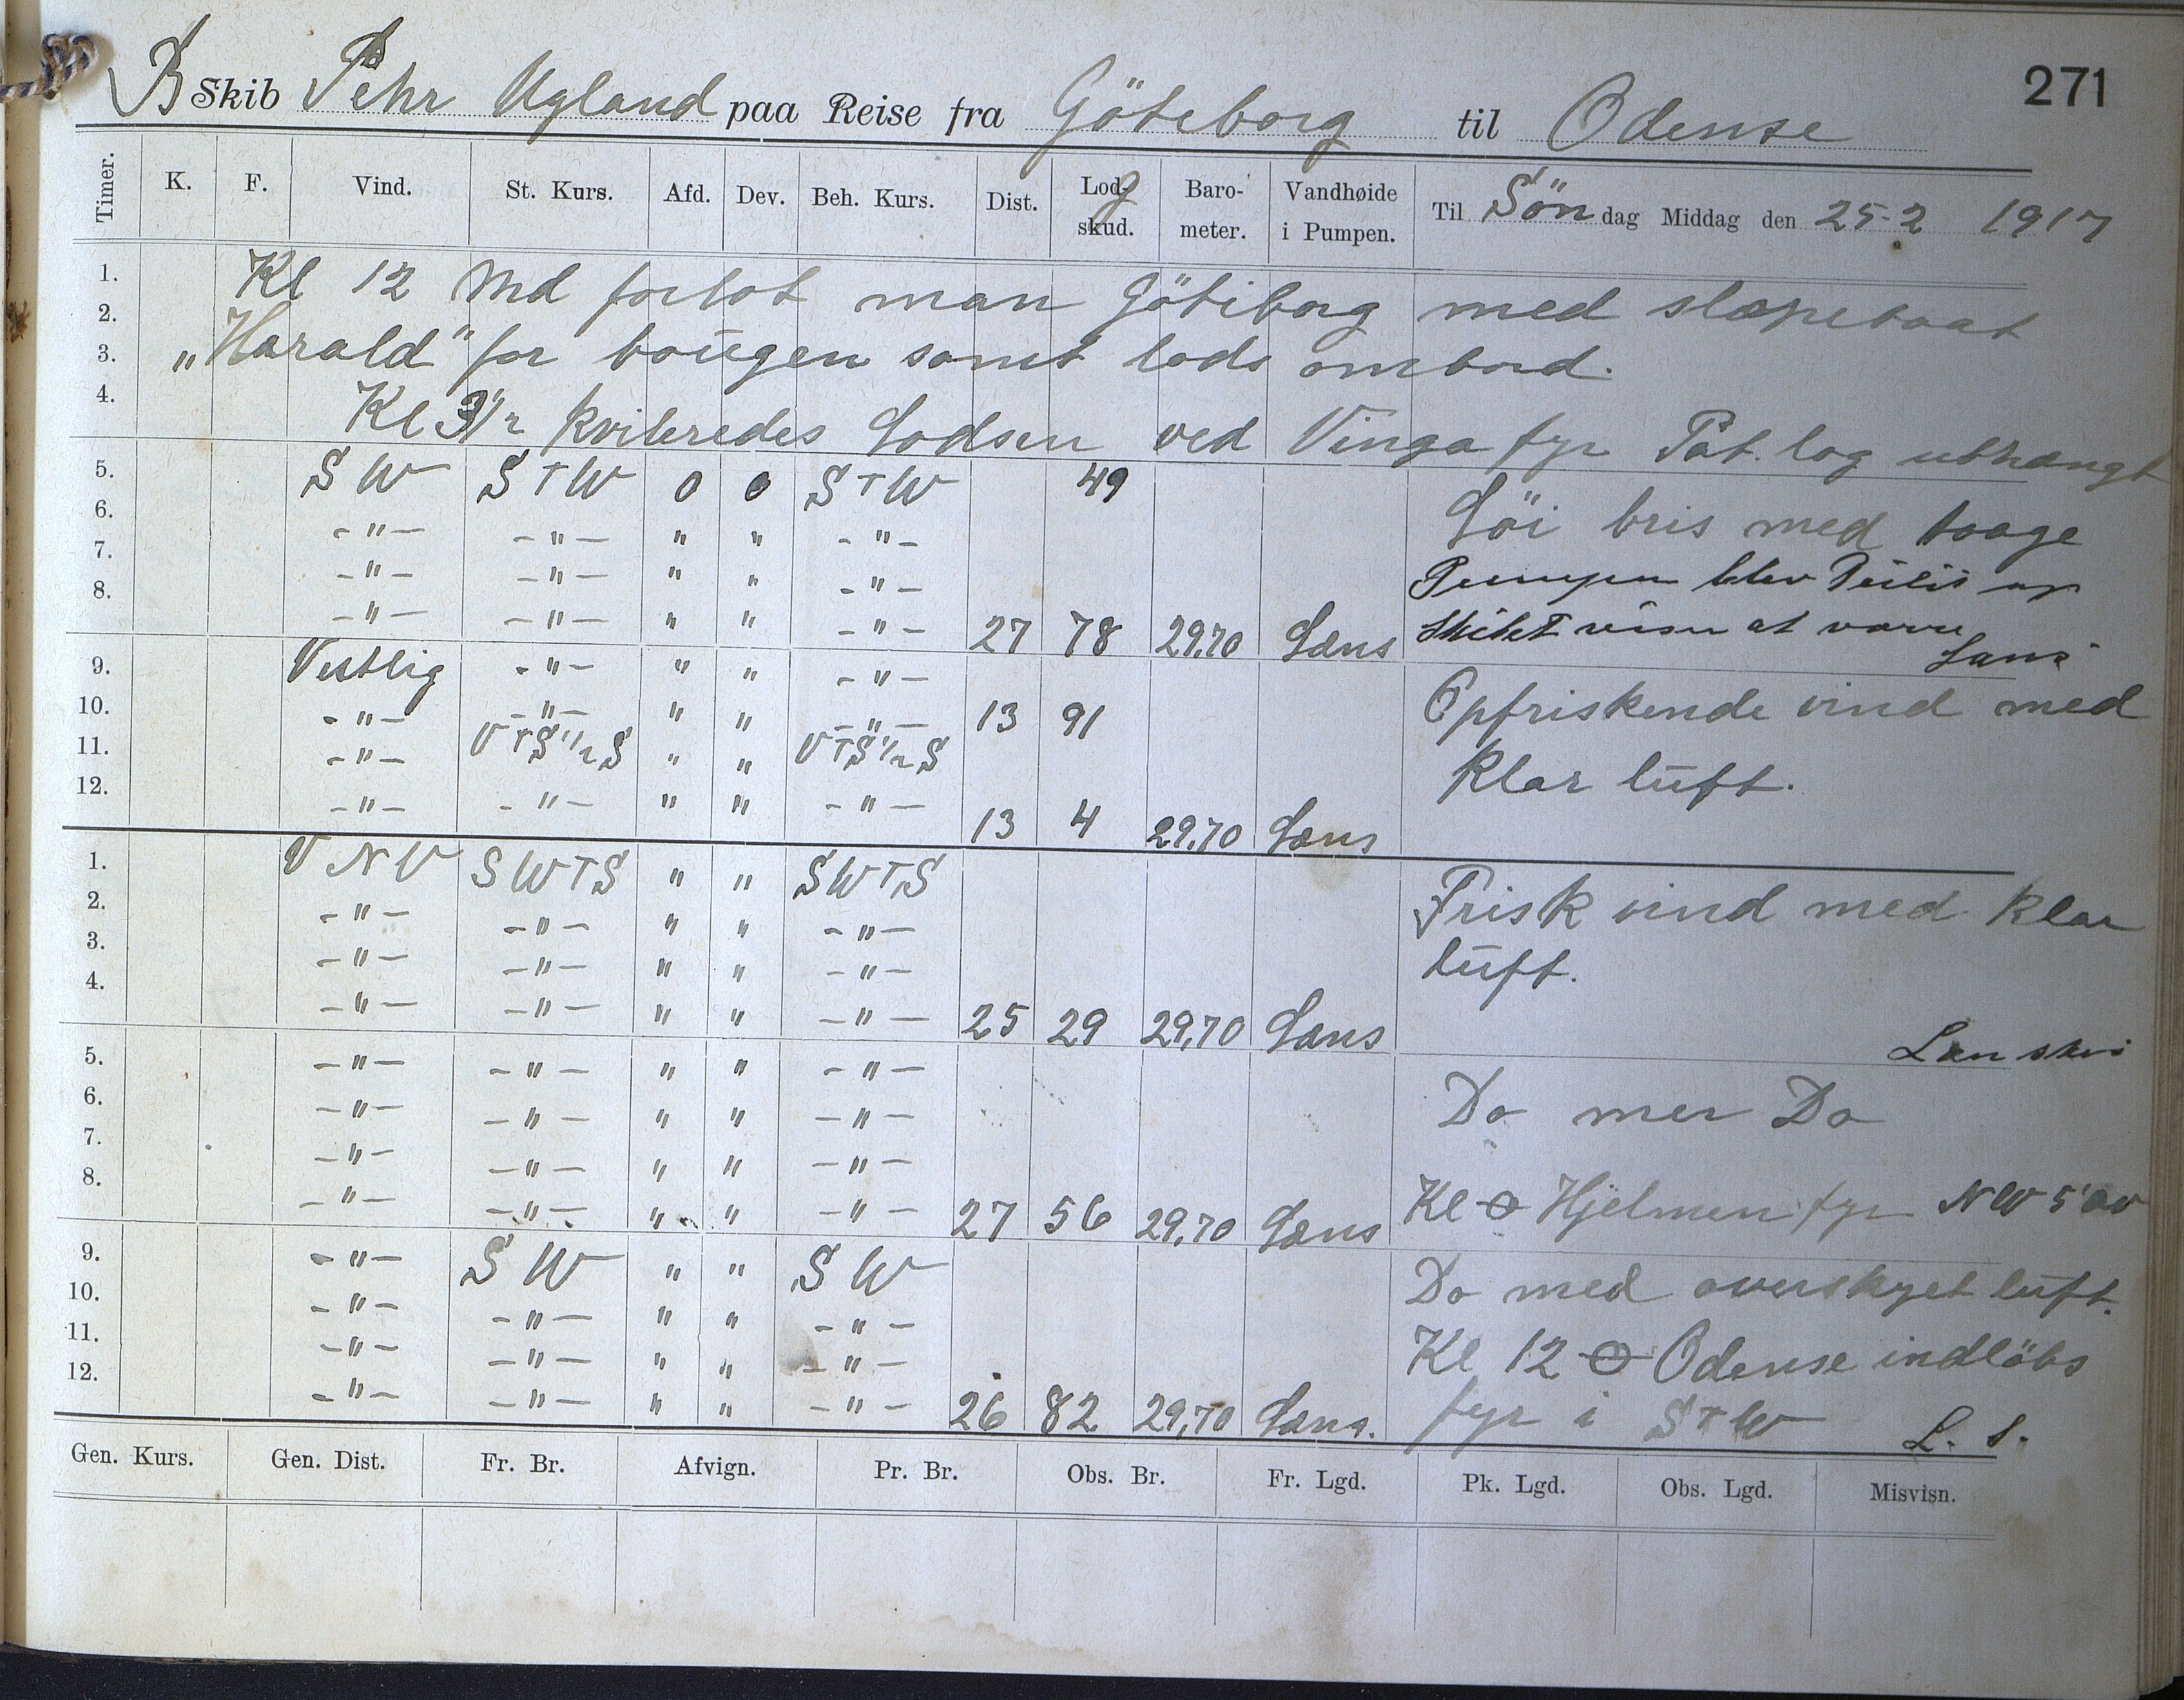 271
B Skib Pehr Ugland paa Reise fra Göteborg til Odense
Timer. K. F. Vind. St. Kurs. Afd. Dev. Beh. Kurs. Dist. Log skud. Baro-meter. Vandhøide i Pumpen. Til Søndag Middag den 25-2 1917
1. Kl 12 Md forlot man Göteborg med slæpebaat
2.
3. „Harald" for bougen samt lods ombord.
4. Kl 3 1/2 kviteredes Lodsen ved Vinga fyr Pat. log uthængt
5. S W S T W 0 0 S T W 49
6. -"- -"- " " -"- Löi bris med taage
7. -"- -"- " " -"- Pumpen blev Peilet og
8. -"- -"- " " -"- 27 78 29.70 Læns Skibet viser at være Læns
9. Vestlig -"- " " -"-
10. -"- -"- " " -"- 13 91 Opfriskende vind med
11. -"- V T S 1/2 S " " V T S 1/2 S klar luft.
12. -"- -"- " " -"- 13 4 29.70 Læns
1. V N V S W T S " " S W T S
2. -"- -"- " " -"- Frisk vind med klar
3. -"- -"- " " -"- luft.
4. -"- -"- " " -"- 25 29 29,70 Læns
Læn skib
5. -"- -"- " " -"-
6. -"- -"- " " -"- Do mer Do
7. -"- -"- " " -"-
8. -"- -"- " " -"- 27 56 29,70 Læns Kl Hjelmen fyr NW 5' av
9. -"- S W " " S W
10. -"- -"- " " -"- Do med overskyet luft.
11. -"- -"- " " -"- Kl 12 Odense indlöbs
12. -"- -"- " " -"- 26 82 29,70 Læns. fyr i S T W L. S.
Gen. Kurs. Gen. Dist. Fr. Br. Afvign. Pr. Br. Obs. Br. Fr. Lgd. Pk. Lgd. Obs. Lgd. Misvisn.